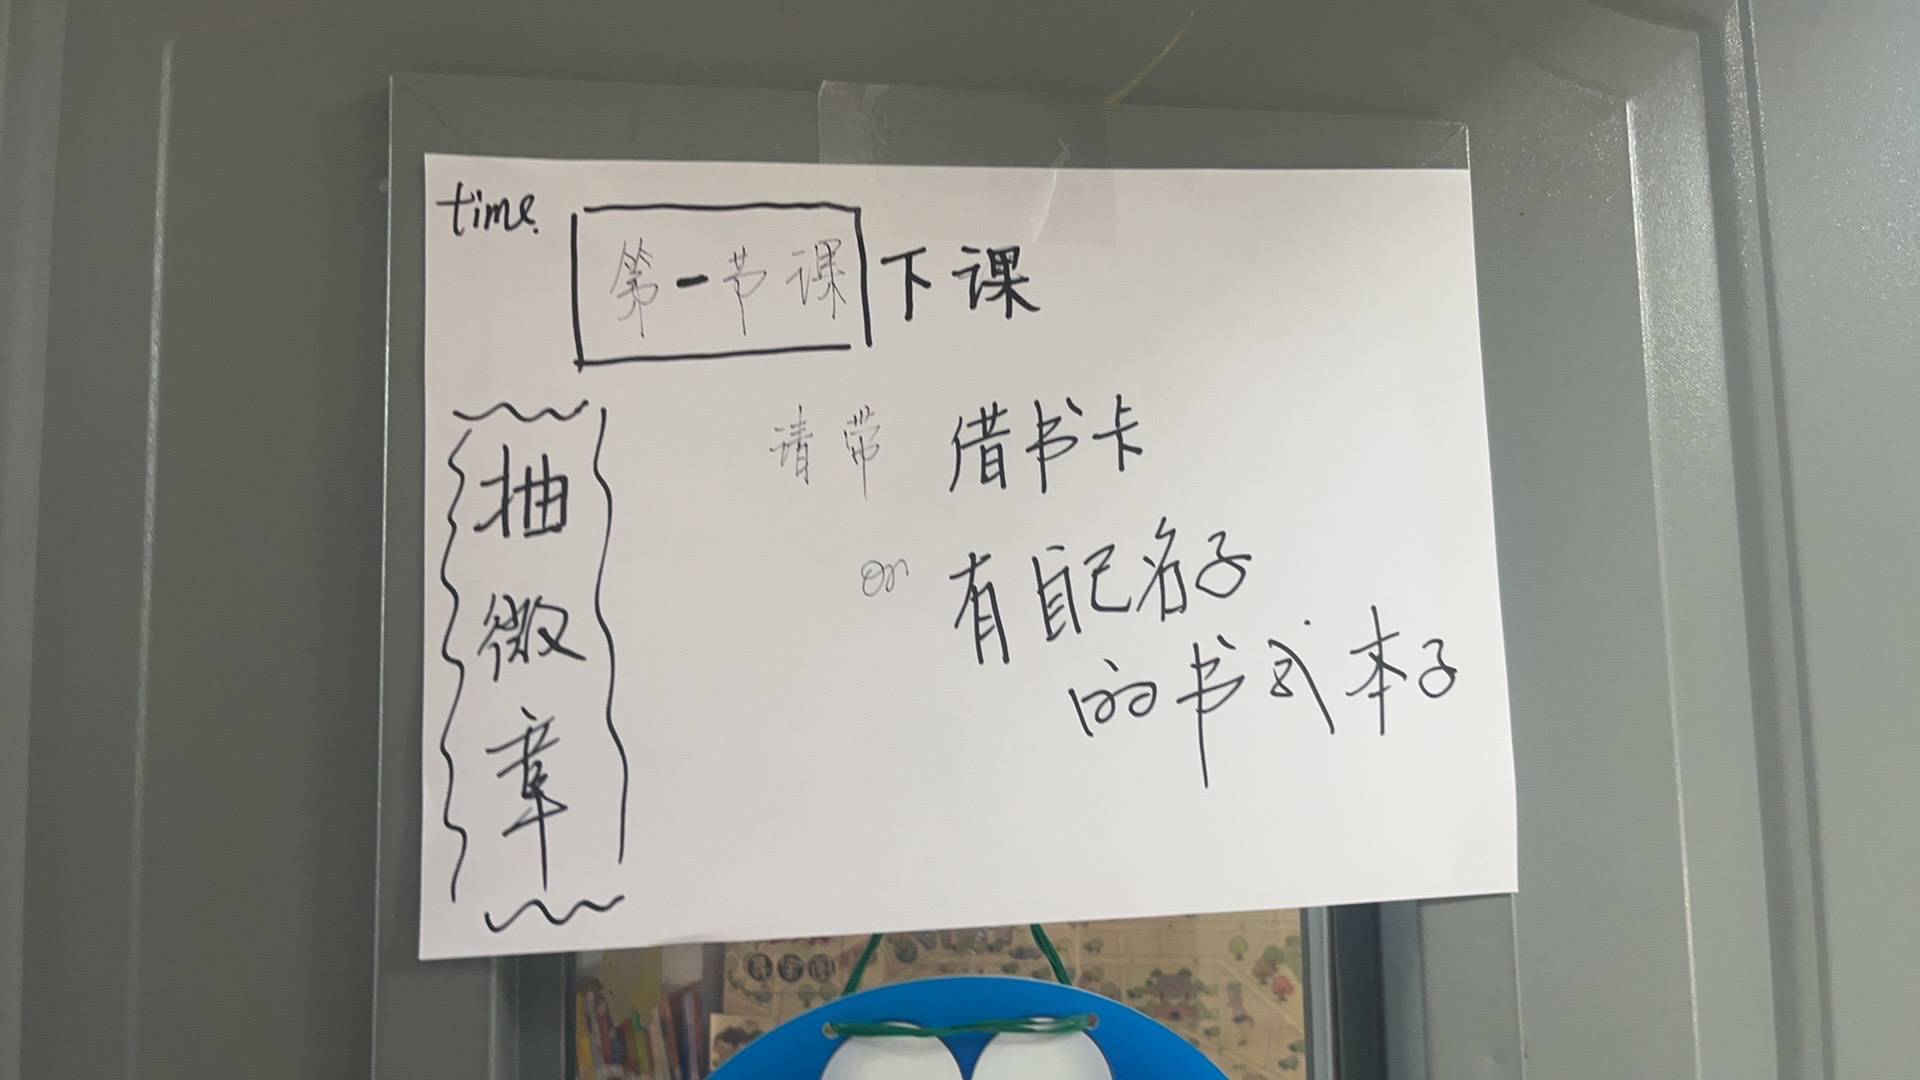 time.
第一节课下课
抽徽章
请带 借书卡
or 有自己名子
的书或本子